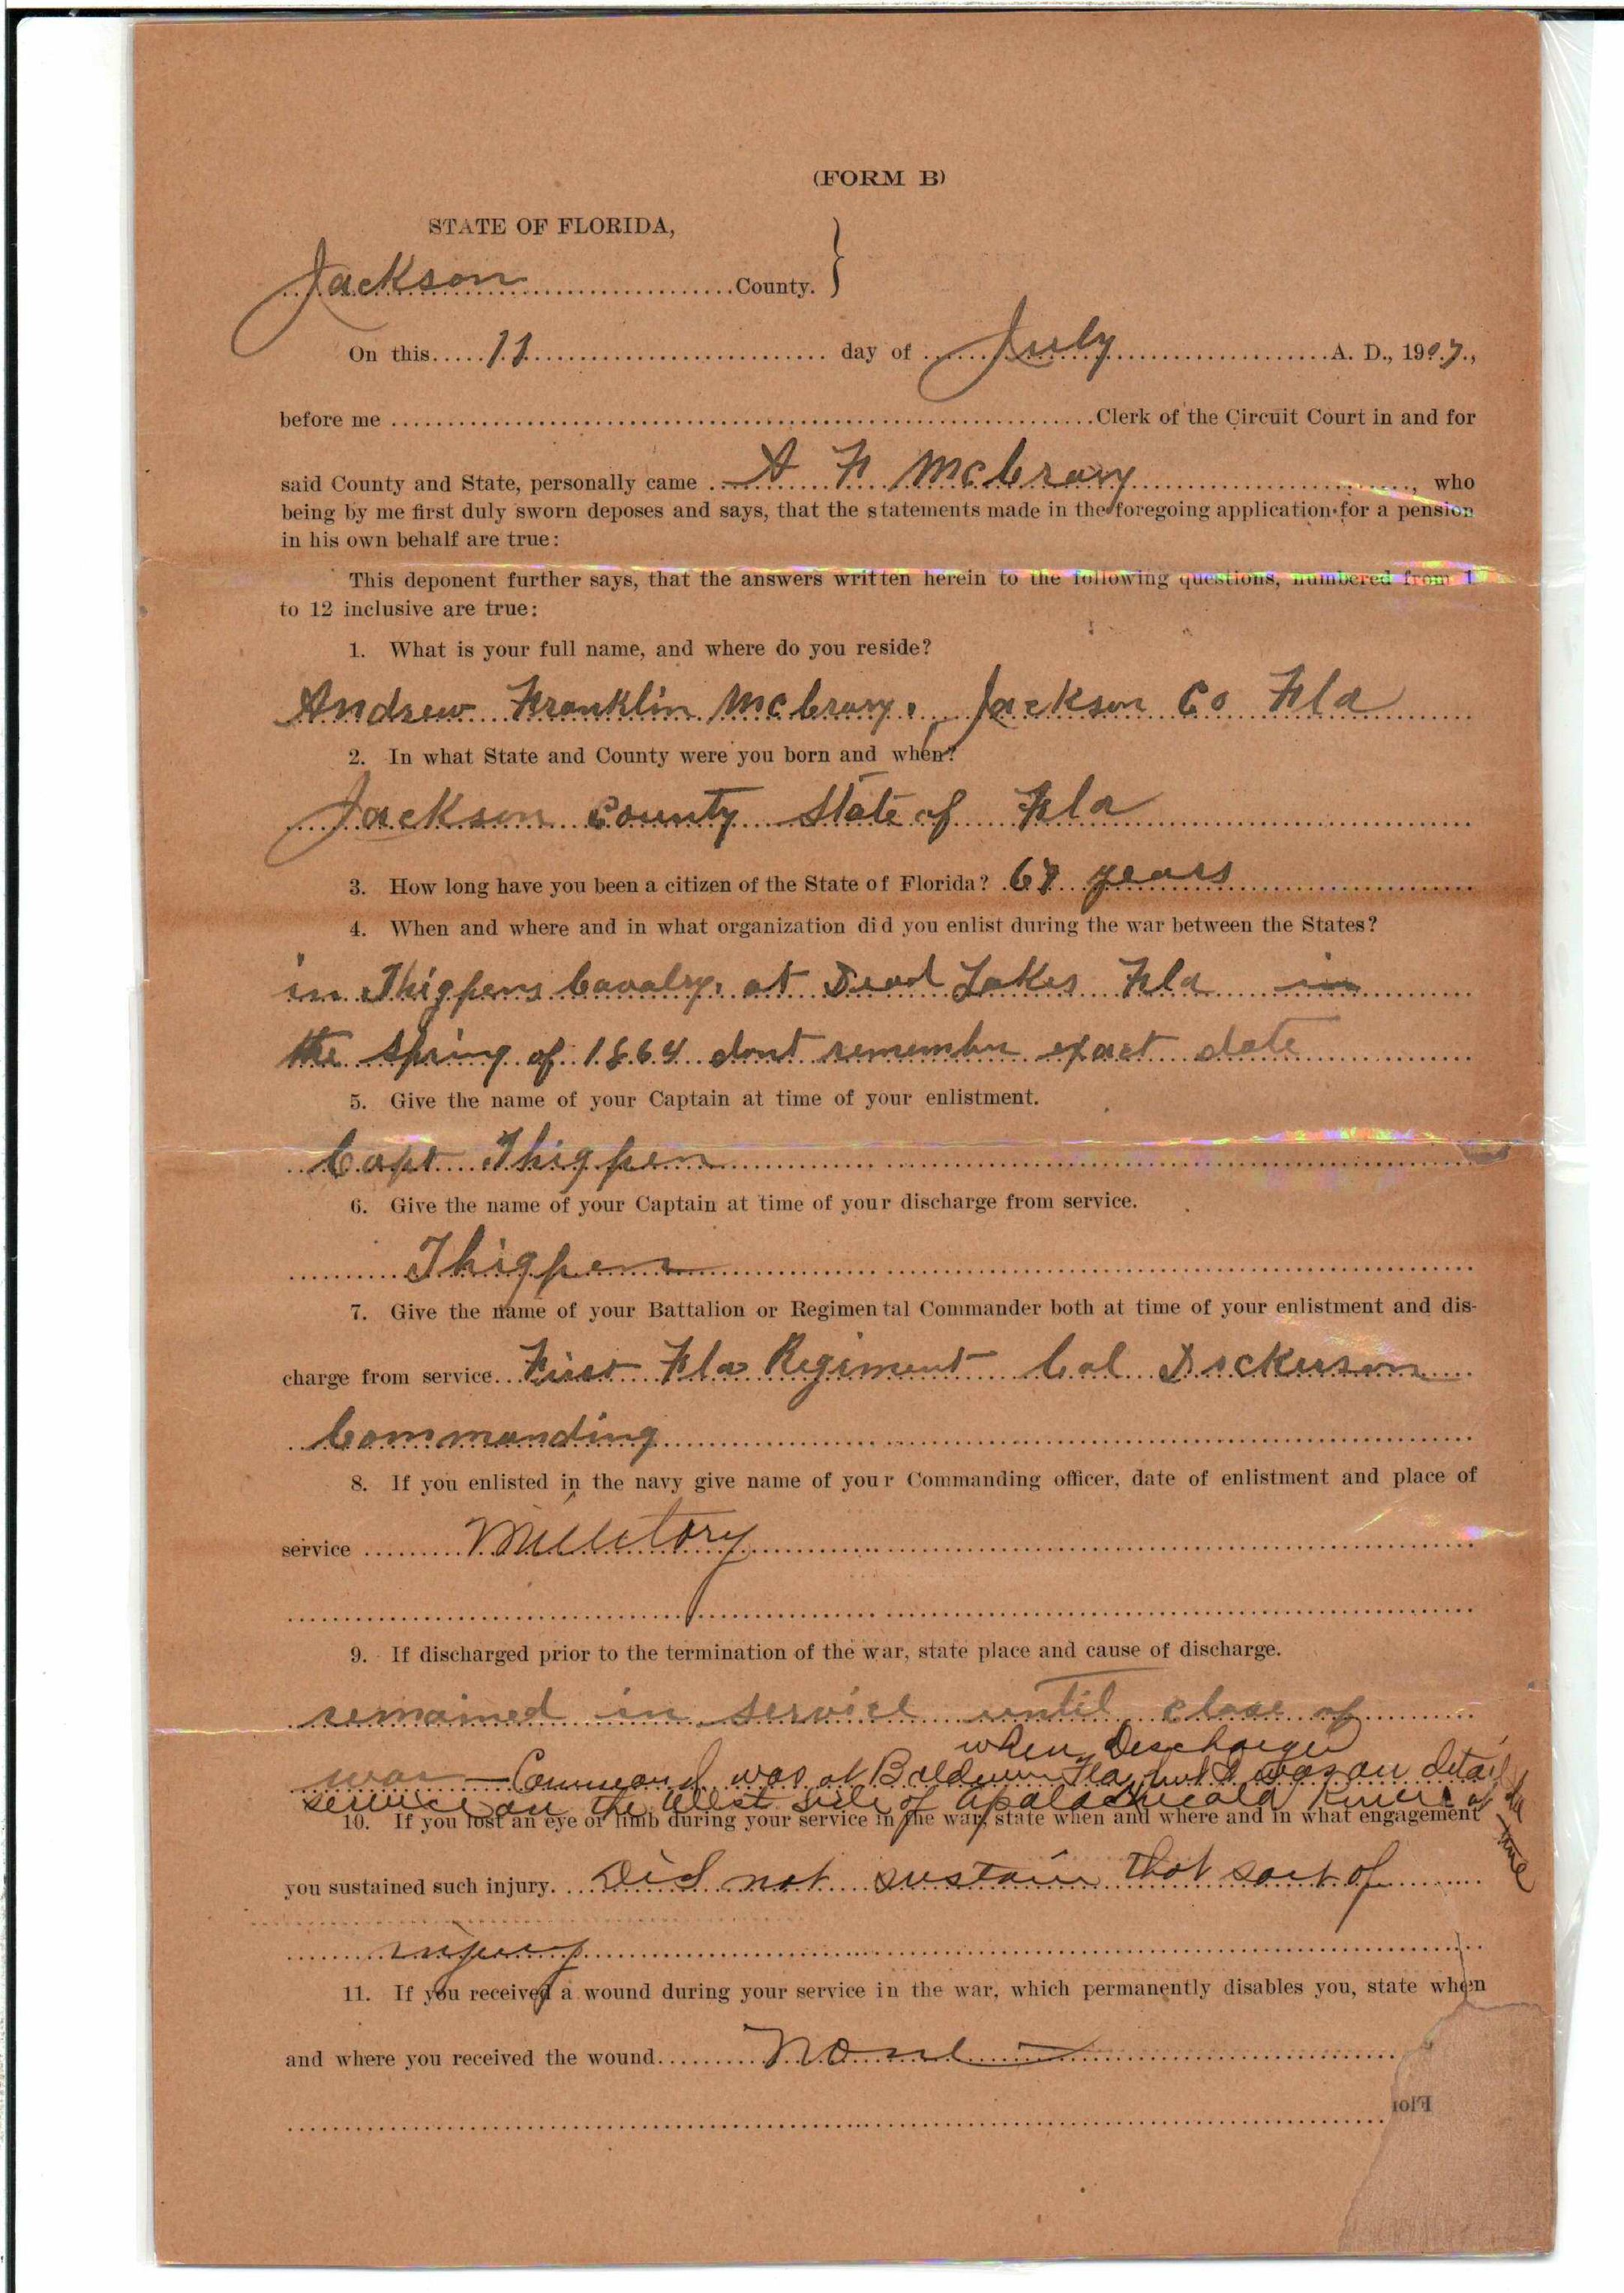 (FORM B)
STATE OF FLORIDA,
Jackson County.
On this 11 day of July A. D., 1907,
before me Clerk of the Circuit Court in and for
said County and State, personally came A F McCrary, who
being by me first duly sworn deposes and says, that the statements made in the foregoing application for a pension
in his own behalf are true:
This deponent further says, that the answers written herein to the following questions, numbered from 1
to 12 inclusive are true:
1. What is your full name, and where do you reside?
Andrew Franklin McCrary. Jackson Co Fla
2. In what State and County were you born and when?
Jackson County State of Fla
3. How long have you been a citizen of the State of Florida? years
4. When and where and in what organization did you enlist during the war between the States?
in Thigpens Cavalry, at Dead Lakes Fla in
the Spring of 1864 dont remember exact date
5. Give the name of your Captain at time of your enlistment.
Capt Thigpen
6. Give the name of your Captain at time of your discharge from service.
Thigpen
7. Give the name of your Battalion or Regimental Commander both at time of your enlistment and dis-
charge from service. First Fla Regiment Col Dickerson
Commanding
8. If you enlisted in the navy give name of your Commanding officer, date of enlistment and place of
service Millitory
9. If discharged prior to the termination of the war, state place and cause of discharge.
remained in service until close of
when Discharged
war - Command was at Baldwin Fla, but I was on detail
service on the West side of Apalachicola River at the time
10. If you lost an eye or limb during your service in the war, state when and where and in what engagement
you sustained such injury. Did not sustain that sort of
injury
11. If you received a wound during your service in the war, which permanently disables you, state when
and where you received the wound None
Flor